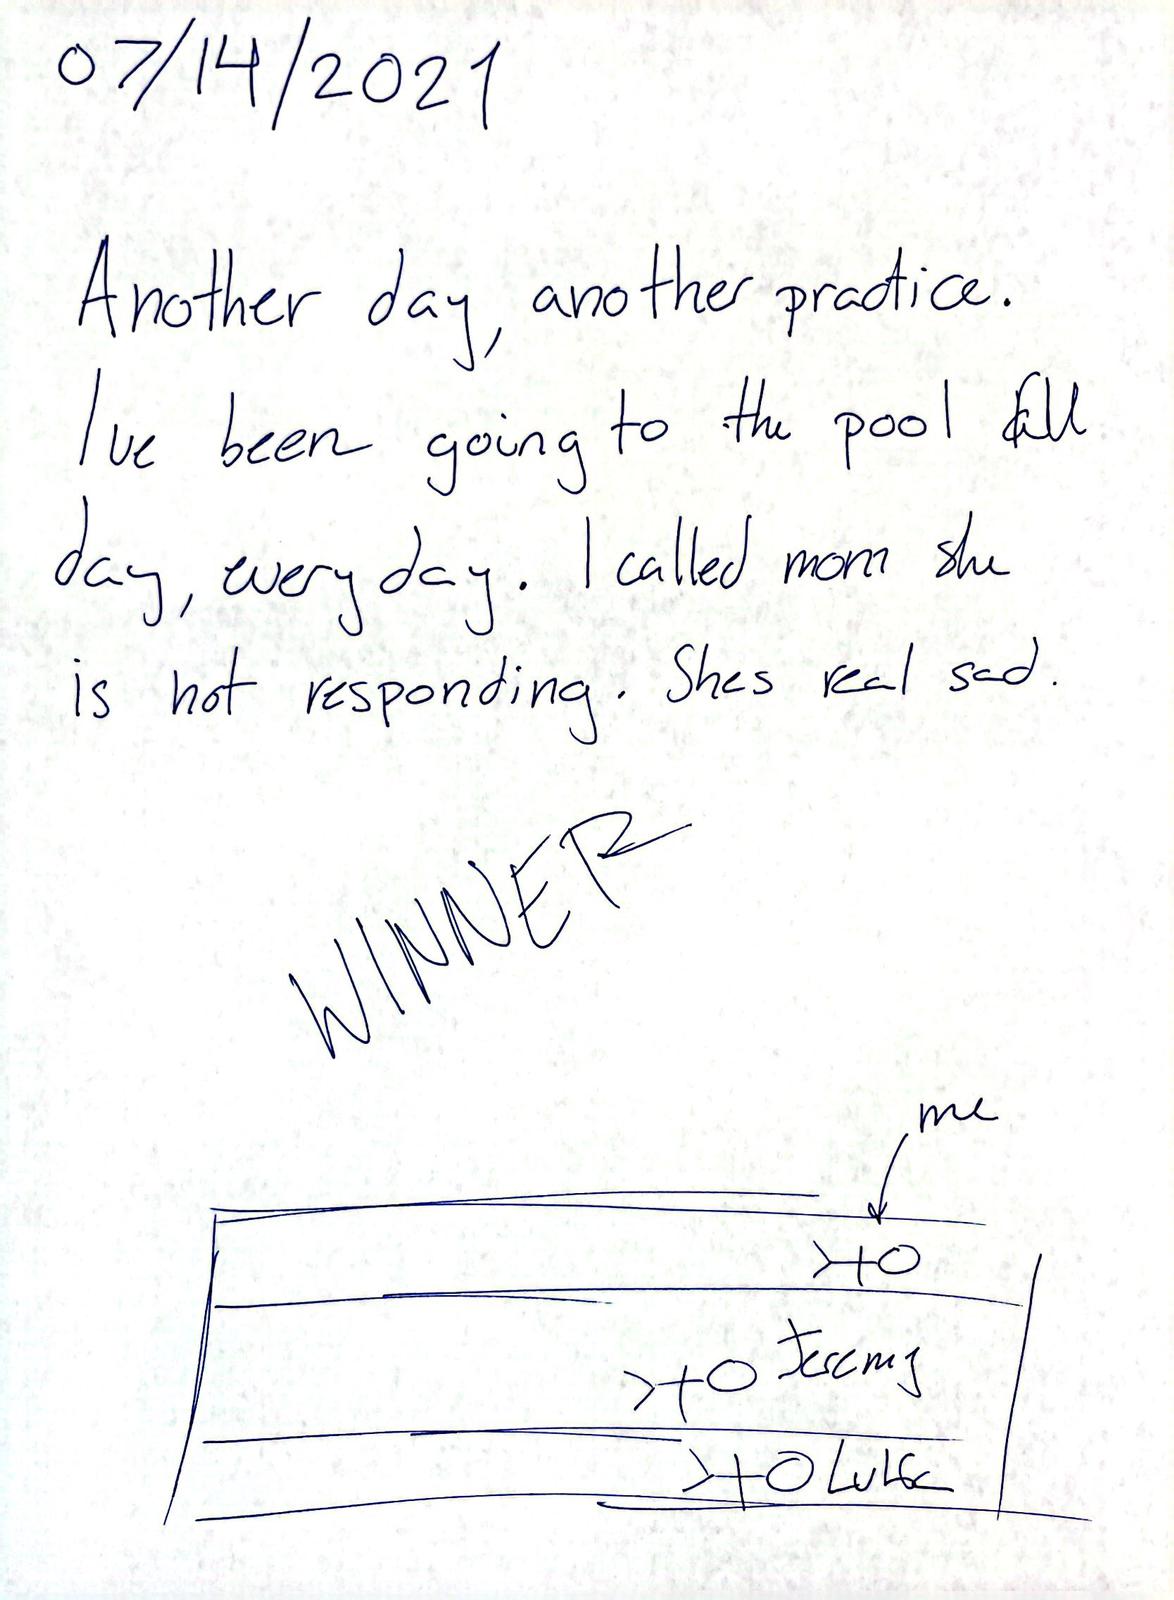 07/14/2021
Another day, another practice.
I've been going to the pool all
day, every day. I called mom she
is not responding. Shes real sad.
WINNER
me
Jeremy
Luke